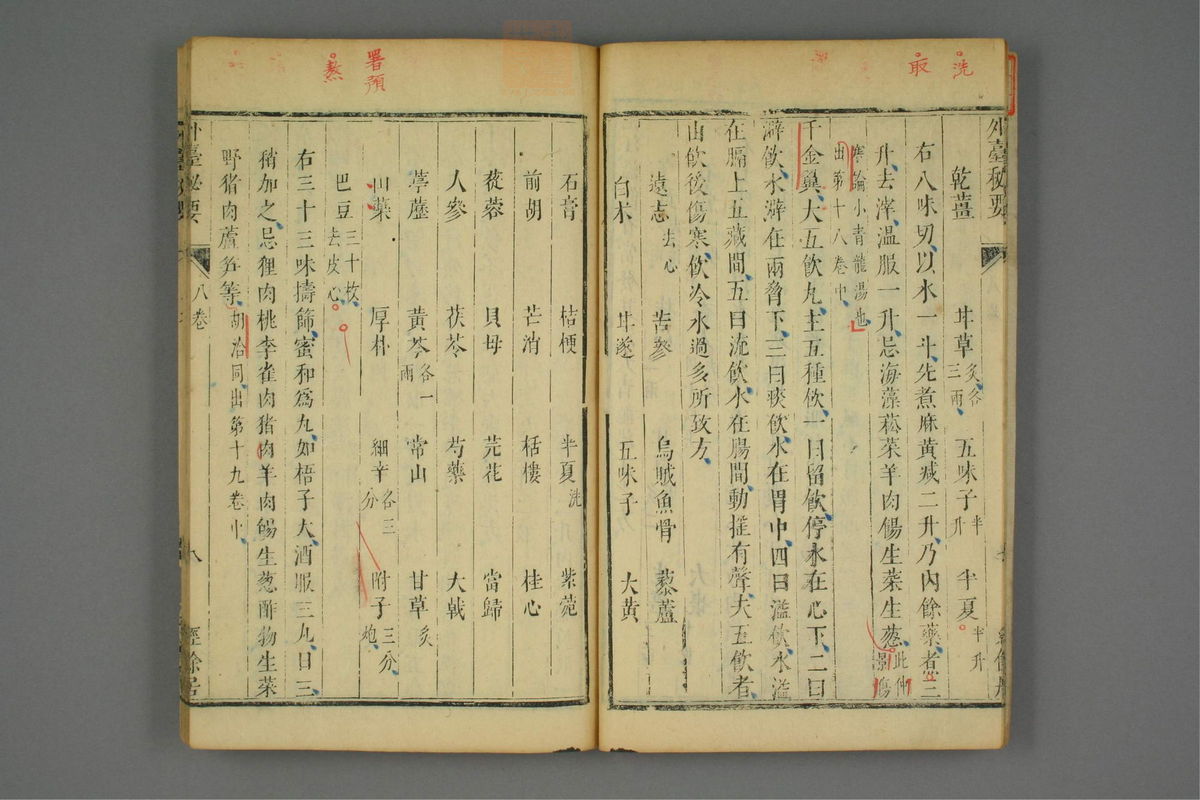 洗
取
外臺秘要
乾薑 甘草炙各三兩 五味子半升 半夏半升
右八味切以水一斗先煮麻黃減二升乃內餘藥煮三
升去滓溫服一升忌海藻菘菜羊肉餳生菜生蔥此仲景傷
寒論小青龍湯也出第十八卷中
千金翼大五飲丸主五種飲一曰留飲停水在心下二曰
澼飲水澼在兩脅下三曰痰飲水在胃中四曰溢飲水溢
在膈上五藏間五曰流飲水在腸間動搖有聲夫五飲者
由飲後傷寒飲冷水過多所致方
遠志去心 苦參 烏賊魚骨 藜蘆
白朮 甘遂 五味子 大黃
石膏 桔梗 半夏洗 紫菀
前胡 芒消 栝樓 桂心
蓯蓉 貝母 芫花 當歸
人參 茯苓 芍藥 大戟
葶藶 黃芩各一兩 常山 甘草炙
山藥 厚朴 細辛各三分 附子三分炮
巴豆三十枚去皮心
右三十三味擣篩蜜和爲丸如梧子大酒服三丸日三
稍加之忌狸肉桃李雀肉猪肉羊肉餳生蔥酢物生菜
野猪肉蘆笋等胡洽同出第十九卷中
署預
熬
外臺秘要
八卷
八
經餘居